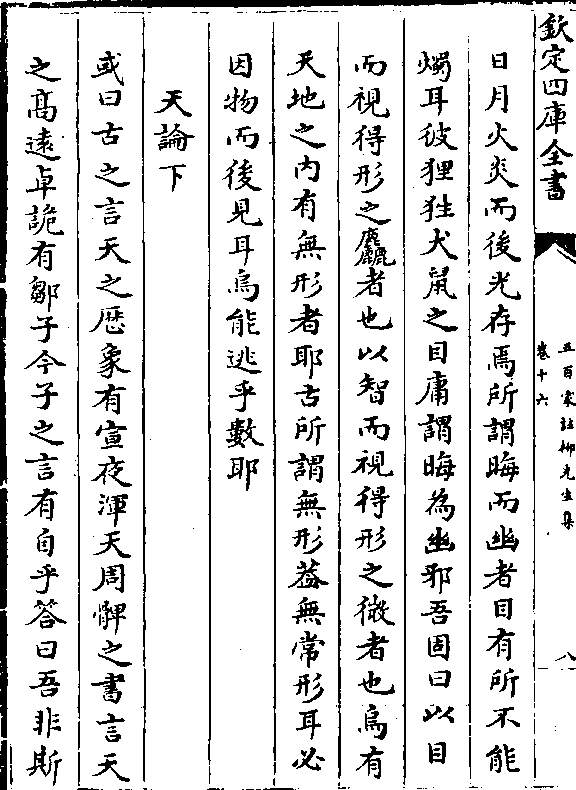 欽定四庫全書
五百家註柳先生集
卷十六
八
日月火炎而後光存焉所謂晦而幽者目有所不能
燭耳彼狸狌犬鼠之目庸謂晦為幽邪吾固曰以目
而視得形之麤者也以智而視得形之微者也烏有
天地之内有無形者耶古所謂無形葢無常形耳必
因物而後見耳烏能逃乎數耶
天論下
或曰古之言天之歴象有宣夜渾天周髀之書言天
之髙逺卓詭有鄒子今子之言有自乎答曰吾非斯